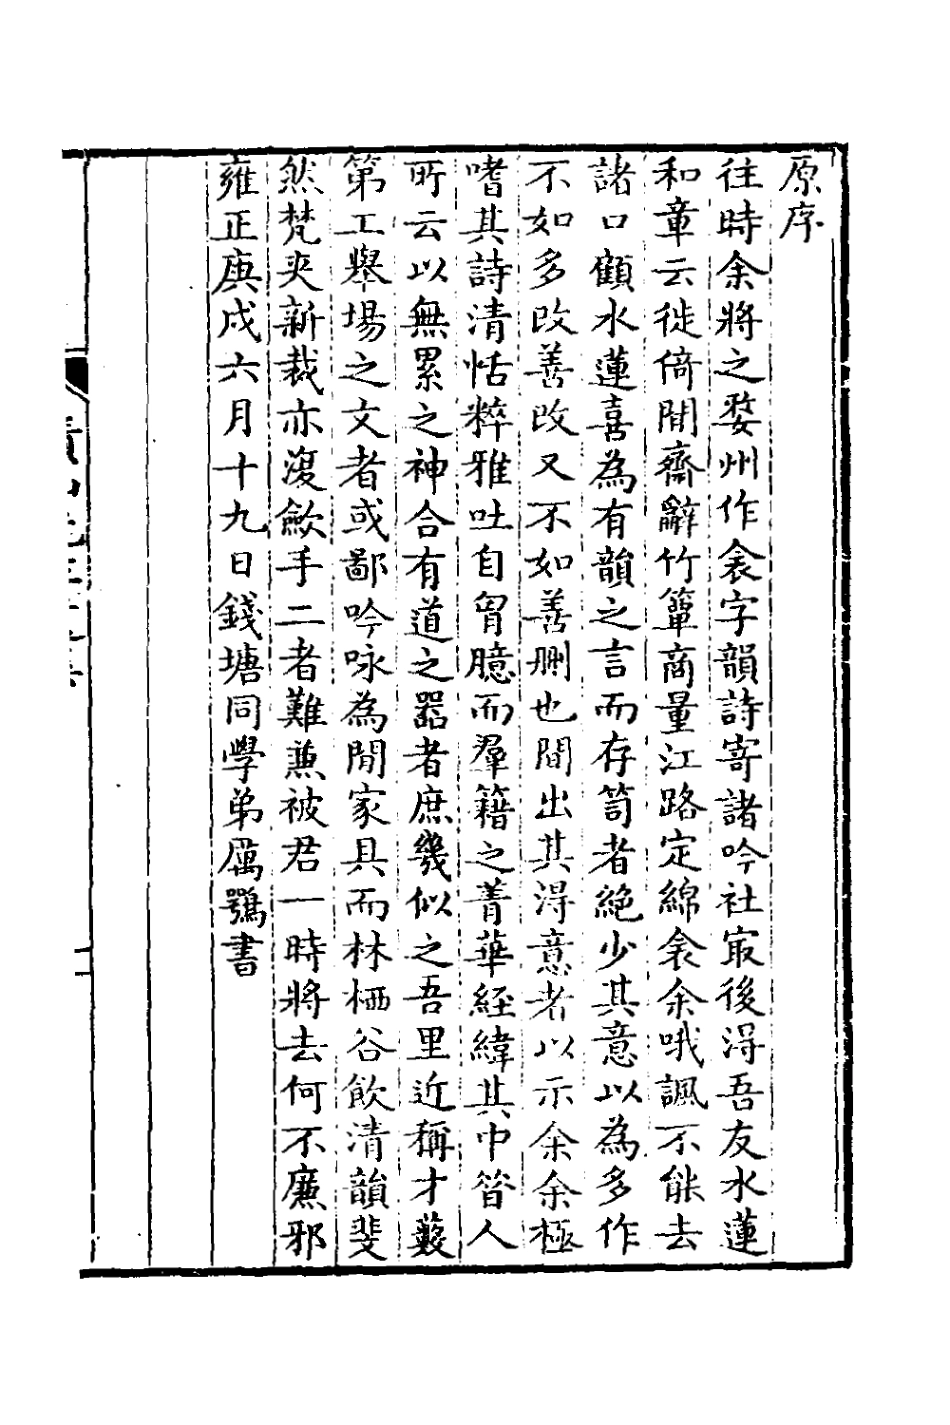 原序
往時余將之婺州作衾字韻詩寄諸吟社㝡後淂吾友水蓮
和章云徙倚閒齋辭竹簟商量江路定綿衾余哦諷不能去
諸口顧水蓮喜為有韻之言而存笥者絶少其意以為多作
不如多改善改又不如善刪也間出其淂意者以示余余極
嗜其詩清恬粹雅吐自胷臆而羣籍之菁華經緯其中昝人
所云以無累之神合有道之器者庶幾似之吾里近稱才藪
第工舉場之文者或鄙吟咏為閒家具而林栖谷飲清韻斐
然梵夾新裁亦澓歛手二者難兼被君一時將去何不廉邪
雍正庚戌六月十九日錢塘同學弟厲鶚書